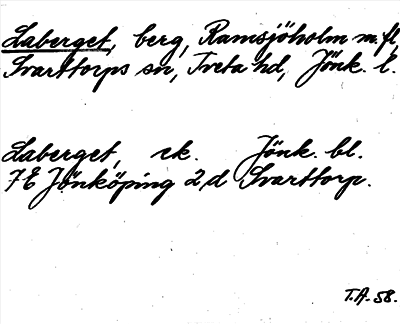 Laberget, berg, Ramsjöholm m.fl,
Svarttorps sn, Tveta hd, Jönk. l.
Laberget, ek. Jönk. bl.
7E Jönköping 2d Svarttorp.
T.A-58.